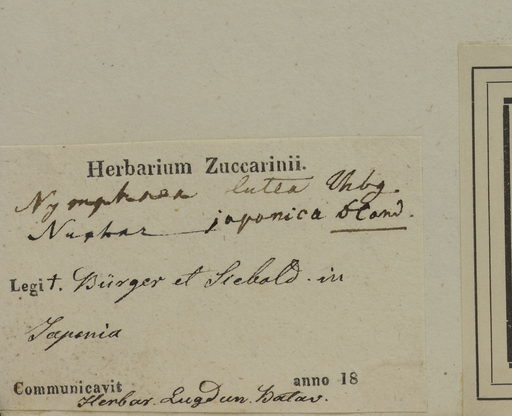 Herbarium Zuccarinii.
Nymphaea lutea Thbg.
Nuphar japonica DCand.
Legit. Bürger et Siebold. in
Japonia
Communicavit anno 18
Herbar. Lugdun. Batav.